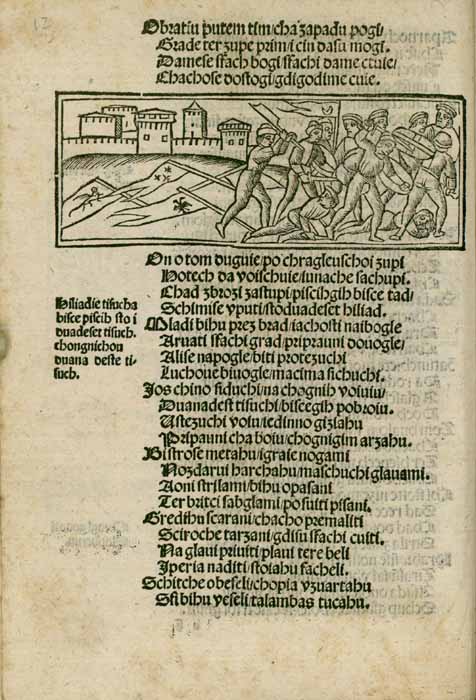 12
Obratiu putem tim/cha zapadu pogi/
Grade ter zupe prim/i cin dasu mogi.
Damese sfach bogi sfachi dame ctuie/
Chachose dostogi/gdigodime cuie.
On o tom duguie/po chragleuschoi zupi
Potech da voischuie/iunache sachupi.
Chad zbrozi zastupi/piscihgih bisce tad/
Schimise vputi/stoduadeset hiliad.
Mladi bihu prez brad/iachosti naibogle
Aruati sfachi grad/pripravni douogle/
Alise napogle/biti protezuchi
Luchoue biuogle/macima sichuchi.
Jos chino siduchi/na chognih voiuiu/
Duanadest tisuchi/biscegih pobroiu.
Ustezuchi voiu/iedinno gizlahu
Pripauni cha boiu/chognigim arzahu.
Bistrose metahu/igraie nogami
Nozdarui harchahu/maschuchi glauami.
Aoni strilami/bihu opasani
Ter britci sabglami/po suiti pisani.
Gredihu scarani/chacho premaliti
Sciroche tarzani/gdisu sfachi cuiti.
Na glaui priuiti/plaui tere beli
Iperia naditi/stoiahu facheli.
Schitche obeseli/chopia vzuartahu
Sfi bihu veseli/talambas tucahu.
Hiliadie tisucha
bisce piscih sto i
duadeset tisuch.
chongnichou
duana deste ti-
such.